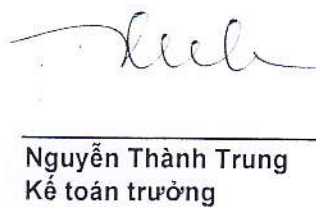 Nguyễn Thành Trung
Kế toán trưởng